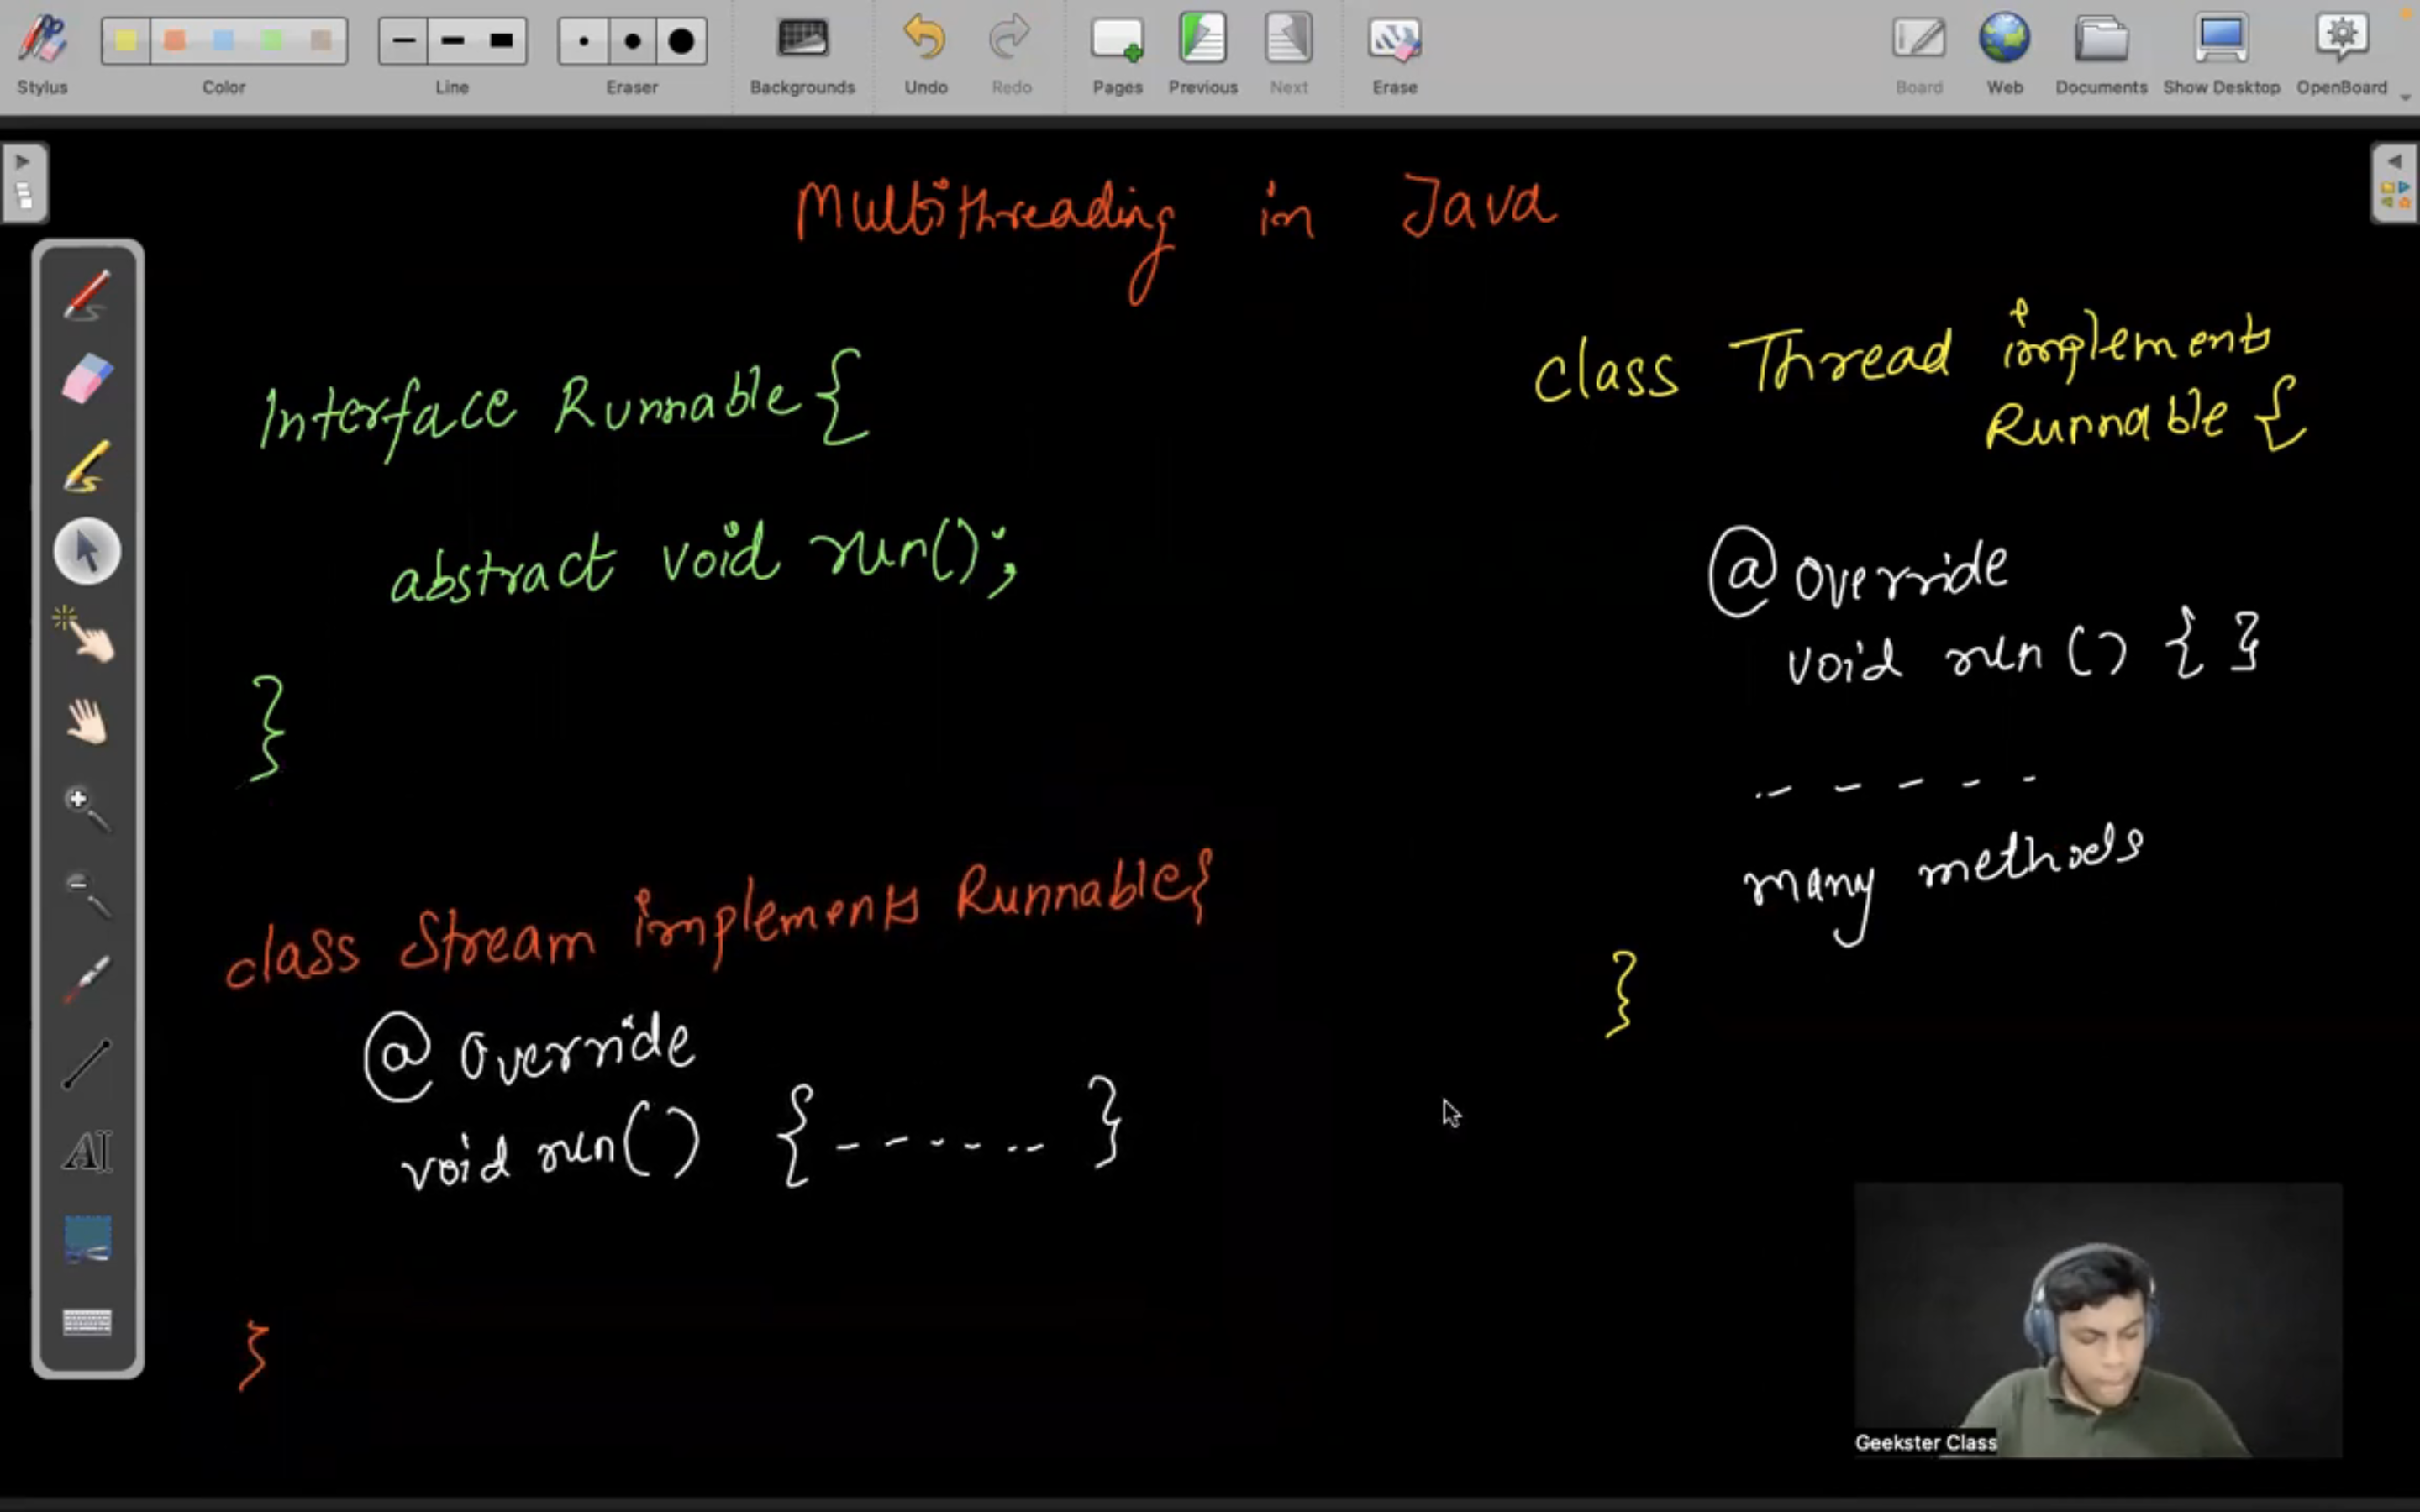 Stylus
Color
Line
Eraser
Backgrounds
Undo
Redo
Pages
Previous
Next
Erase
Board
Web
Documents
Show Desktop
OpenBoard
Multithreading in Java
Interface Runnable {
abstract void run();
}
class Stream implements Runnable{
@ Override
void run() { - - - - - - }
}
class Thread implements
Runnable {
@ override
void run () { }
- - - - -
many methods
}
AI
Geekster Class